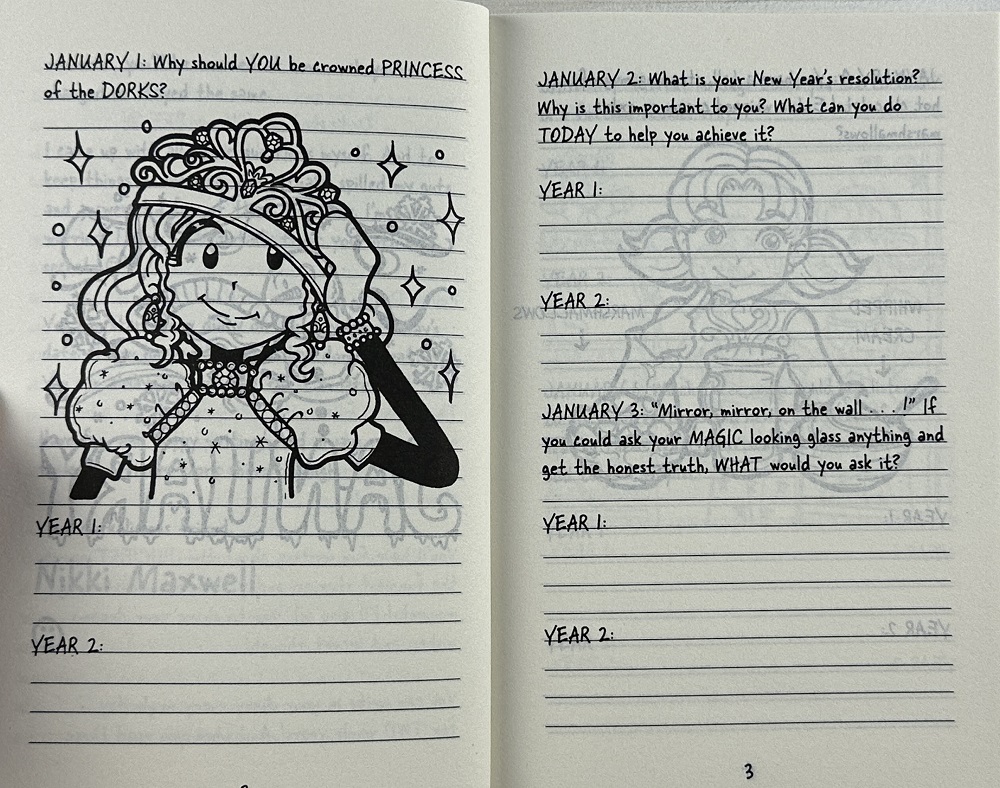 JANUARY 1: Why should YOU be crowned PRINCESS
of the DORKS?
YEAR 1:
Nikki Maxwell
YEAR 2:
JANUARY 2: What is your New Year's resolution?
Why is this important to you? What can you do
TODAY to help you achieve it?
YEAR 1:
YEAR 2:
MARSHMALLOWS
WHIPPED
CREAM
JANUARY 3: "Mirror, mirror, on the wall . . . !" If
you could ask your MAGIC looking glass anything and
get the honest truth, WHAT would you ask it?
YEAR 1:
YEAR 2:
3